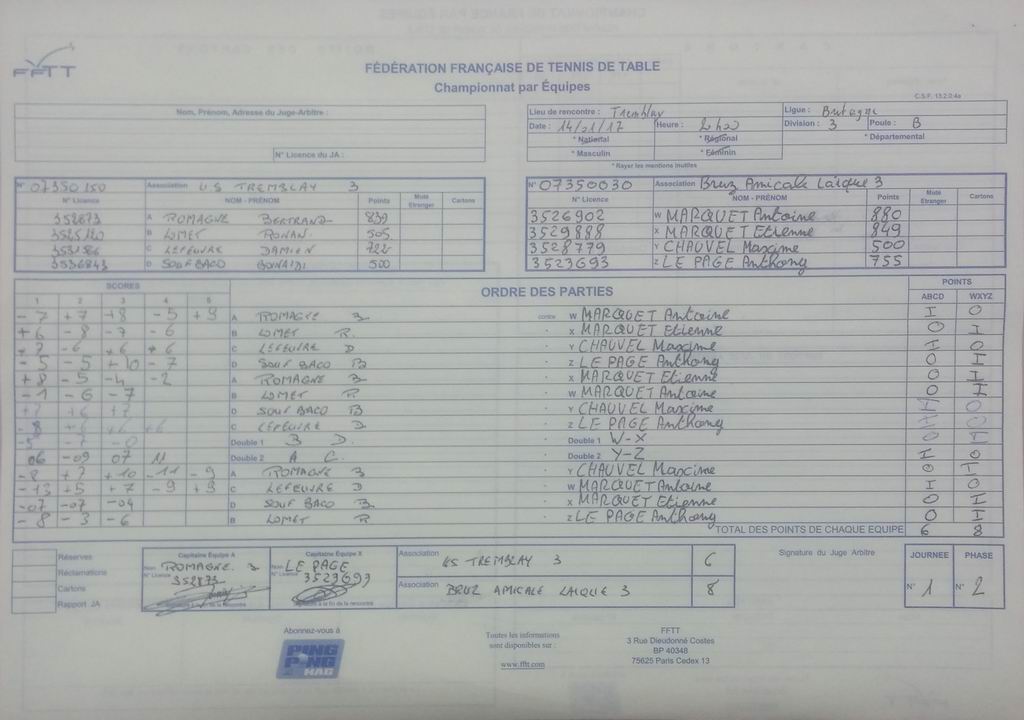 FFTT
FÉDÉRATION FRANÇAISE DE TENNIS DE TABLE
Championnat par Équipes
C.S.F. 13.2.0.4a
Nom, Prénom, Adresse du Juge-Arbitre :
N° Licence du JA :
Lieu de rencontre : Tremblay
Ligue : Bretagne
Date : 14/01/17 Heure : 20h00
Division : 3 Poule : B
* National * Régional * Départemental
* Masculin * Féminin
* Rayer les mentions inutiles
N° 07350150 Association U.S TREMBLAY 3
N° Licence NOM - PRÉNOM Points Muté Etranger Cartons
352873 A ROMAGNE BERTRAND 839
3525120 B LOMET RONAN 505
3531586 C LEFEUVRE DAMIEN 722
3536843 D SOUF BACO 500
N° 07350030 Association Bruz Amicale Laïque 3
N° Licence NOM - PRÉNOM Points Muté Etranger Cartons
3526902 W MARQUET Antoine 880
3529888 X MARQUET Etienne 849
3528779 Y CHAUVEL Maxime 500
3523693 Z LE PAGE Anthony 755
SCORES ORDRE DES PARTIES POINTS
1 2 3 4 5 ABCD WXYZ
-7 +7 +8 -5 +9 A ROMAGNE B contre W MARQUET Antoine I O
+6 -8 -7 -6 B LOMET R. X MARQUET Etienne O I
+7 -6 +6 +6 C LEFEUVRE D Y CHAUVEL Maxime I O
-5 -5 +10 -7 D SOUF BACO B Z LE PAGE Anthony O I
+8 -5 -4 -2 A ROMAGNE B X MARQUET Etienne O I
-1 -6 -7 B LOMET R W MARQUET Antoine O I
+7 +6 +7 D SOUF BACO B Y CHAUVEL Maxime I O
-8 +6 +6 +6 C LEFEUVRE D. Z LE PAGE Anthony I O
-5 -7 -0 Double 1 B D. Double 1 W-X O I
06 -09 07 11 Double 2 A C. Double 2 Y-Z I O
-8 +7 +10 -11 -9 A ROMAGNE B Y CHAUVEL Maxime O I
-13 +5 +7 -9 +9 C LEFEUVRE D W MARQUET Antoine I O
-07 -07 -04 D SOUF BACO B. X MARQUET Etienne O I
-8 -3 -6 B LOMET R Z LE PAGE Anthony O I
TOTAL DES POINTS DE CHAQUE EQUIPE 6 8
Réserves
Réclamations
Cartons
Rapport JA
Capitaine Équipe A
Nom ROMAGNE B
N° Licence 352873
Signature à la fin de la rencontre
Capitaine Équipe X
Nom LE PAGE
N° Licence 3523693
Signature à la fin de la rencontre
Association US TREMBLAY 3 6
Association BRUZ AMICALE LAIQUE 3 8
Signature du Juge Arbitre
JOURNEE PHASE
N° 1 N° 2
Abonnez-vous à
PING PONG MAG
Toutes les informations
sont disponibles sur :
www.fftt.com
FFTT
3 Rue Dieudonné Costes
BP 40348
75625 Paris Cedex 13